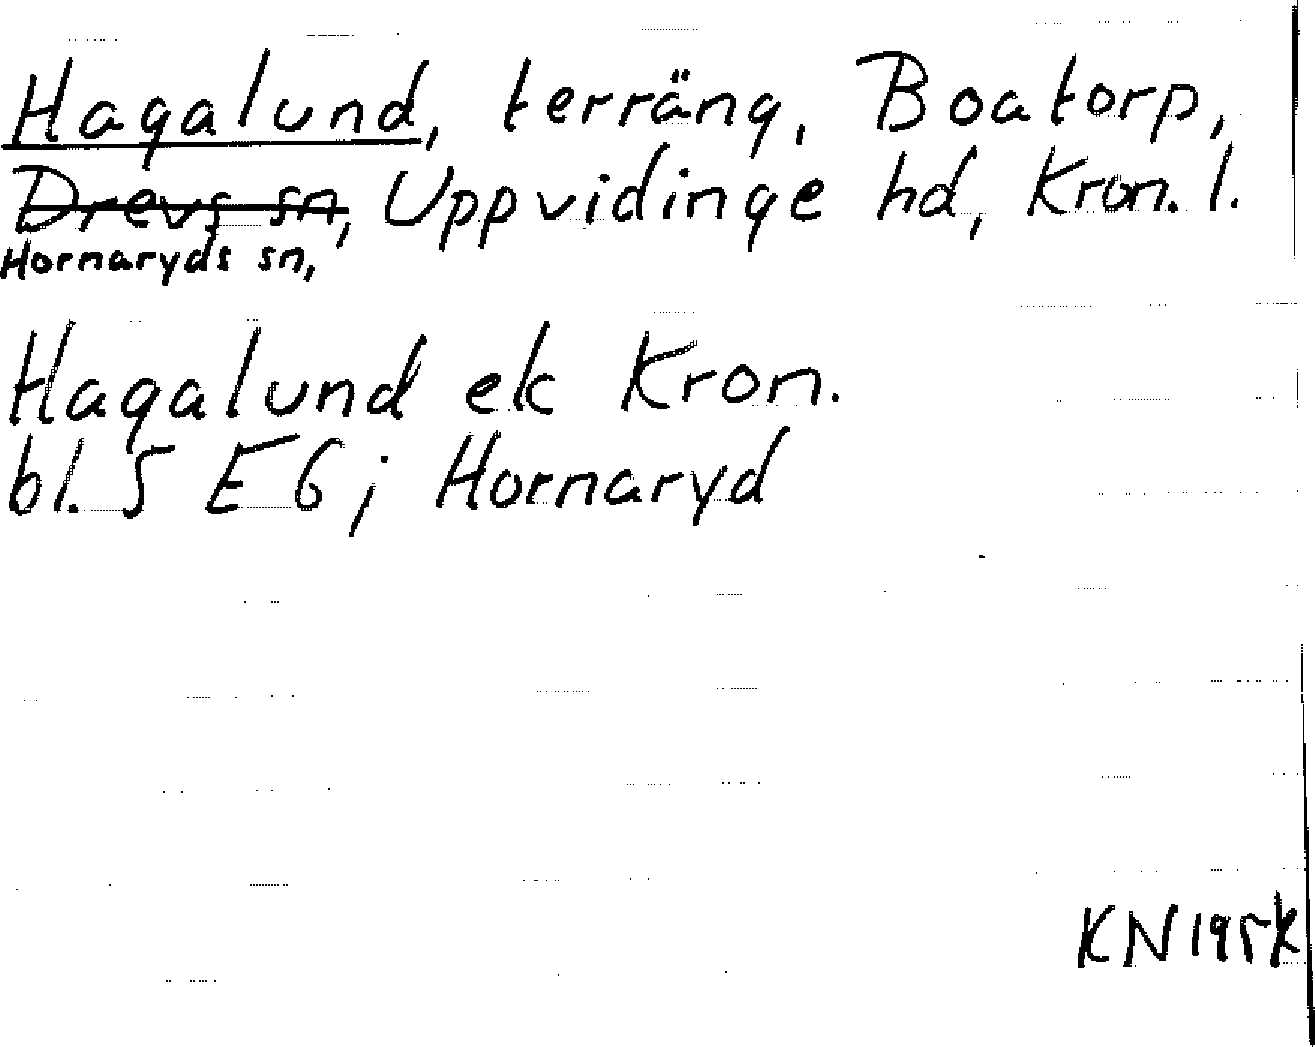 Hagalund, terräng, Boatorp,
Drevs sn, Uppvidinge hd, Kron. l.
Hornaryds sn,
Hagalund ek Kron.
bl. 5 E 6 j Hornaryd